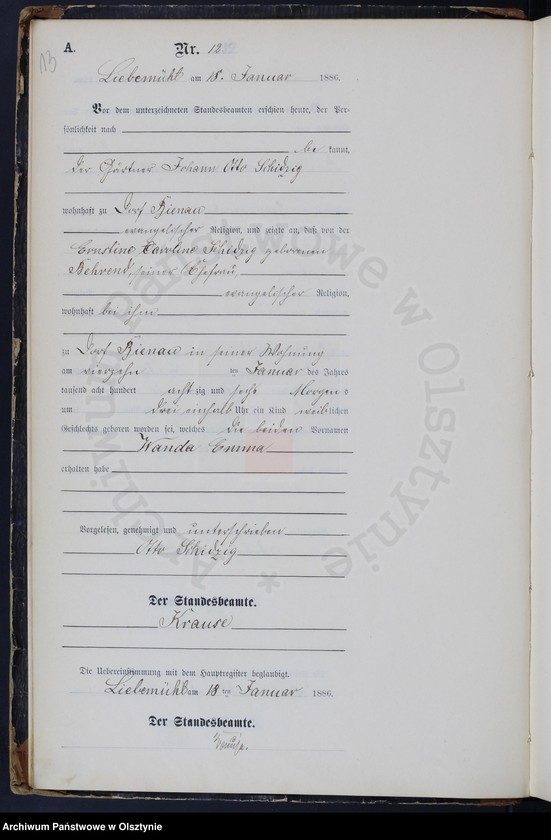 13
A.
Nr. 12
Liebemühl am 18. Januar 1886.
Vor dem unterzeichneten Standesbeamten erschien heute, der Per-
sönlichkeit nach
be kannt,
der Gärtner Johann Otto Schidzig
wohnhaft zu Dorf Bienau
evangelischer Religion, und zeigte an, daß von der
Ernstine Caroline Schidzig geborenen
Behrend, seiner Ehefrau,
evangelischer Religion,
wohnhaft bei ihm
zu Dorf Bienau in seiner Wohnung
am vierzehn ten Januar des Jahres
tausend acht hundert achtzig und sechs Morgens
um drei einhalb Uhr ein Kind weiblichen
Geschlechts geboren worden sei, welches die beiden Vornamen
Wanda Emma
erhalten habe
Vorgelesen, genehmigt und unterschrieben
Otto Schidzig
Der Standesbeamte.
Krause
Die Uebereinstimmung mit dem Hauptregister beglaubigt.
Liebemühl am 18 ten Januar 1886.
Der Standesbeamte.
Archiwum Państwowe w Olsztynie
Archiwum Państwowe w Olsztynie